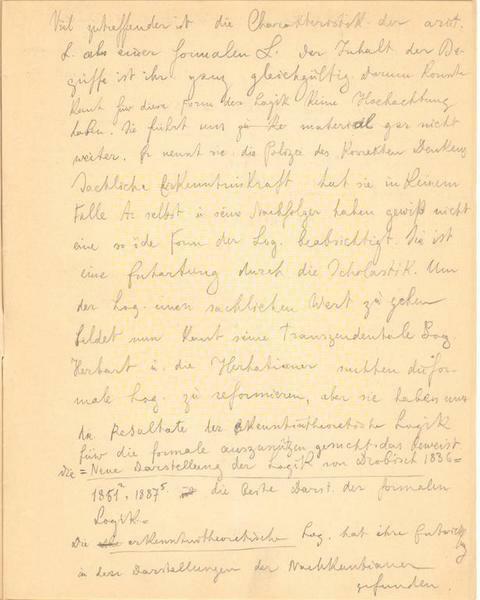 Viel zutreffender ist die Charakteristik der arist.
L. als einer formalen L. Der Inhalt der Be-
griffe ist ihr ganz gleichgültig. Darum konnte
Kant für diese Form der Logik keine Hochachtung
haben. Sie führt uns material gar nicht
weiter. Er nennt sie die Polizei des korrekten Denkens
Sachliche Erkenntniskraft hat sie in keinem
Falle. A. selbst u seine Nachfolger haben gewiß nicht
eine so öde Form der Log. beabsichtigt. Sie ist
eine Entartung durch die Scholastik. Um
der Log. einen sachlichen Wert zu geben
bildet nun Kant seine Transzendentale Log.
Herbart u. die Herbatianer suchten die for-
male Log. zu reformieren, aber sie haben nur
die Resultate der erkenntnistheoretische Logik
für die formale auszunützen gesucht. das beweist
Die = Neue Darstellung der Logik von Drobisch 1836 =
1851², 1887⁵. die beste Darst. der formalen
Logik. =
Die erkenntnistheoretische Log. hat ihre Entwicklg
in den Darstellungen der Nachkantianer
gefunden.